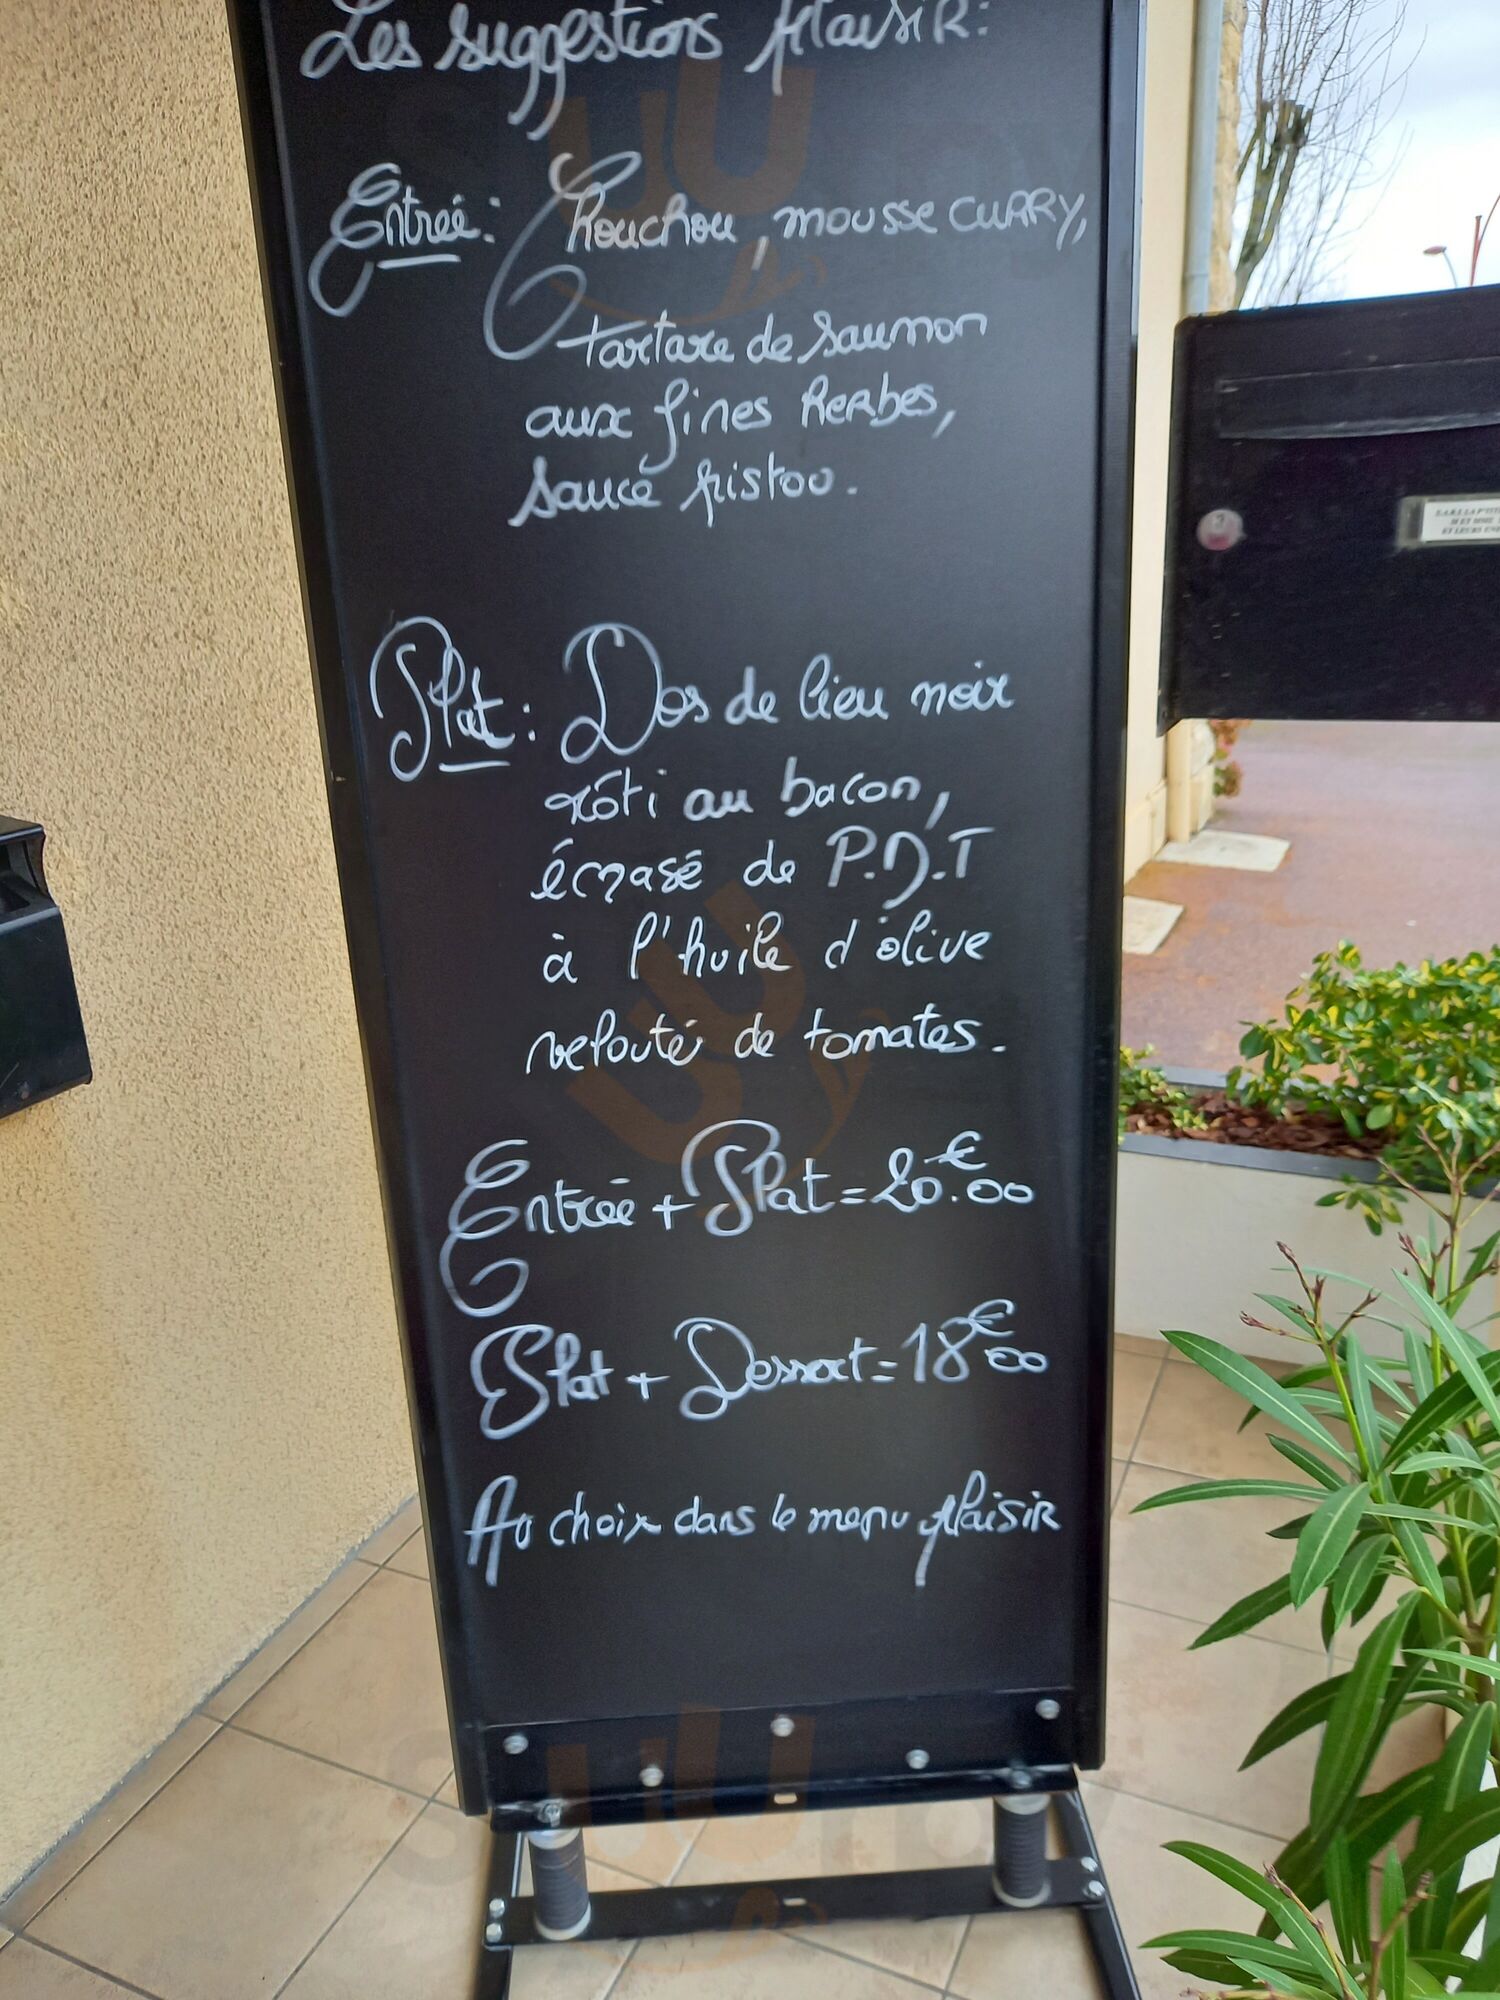 Les suggestions plaisir:
Entrée: Chouchou, mousse CURRY,
tartare de saumon
aux fines herbes,
sauce pistou.
Plat: Dos de lieu noir
rôti au bacon,
écrasé de P.D.T
à l'huile d'olive
velouté de tomates.
Entrée + Plat = 20.€00
Plat + Dessert = 18€00
Au choix dans le menu plaisir